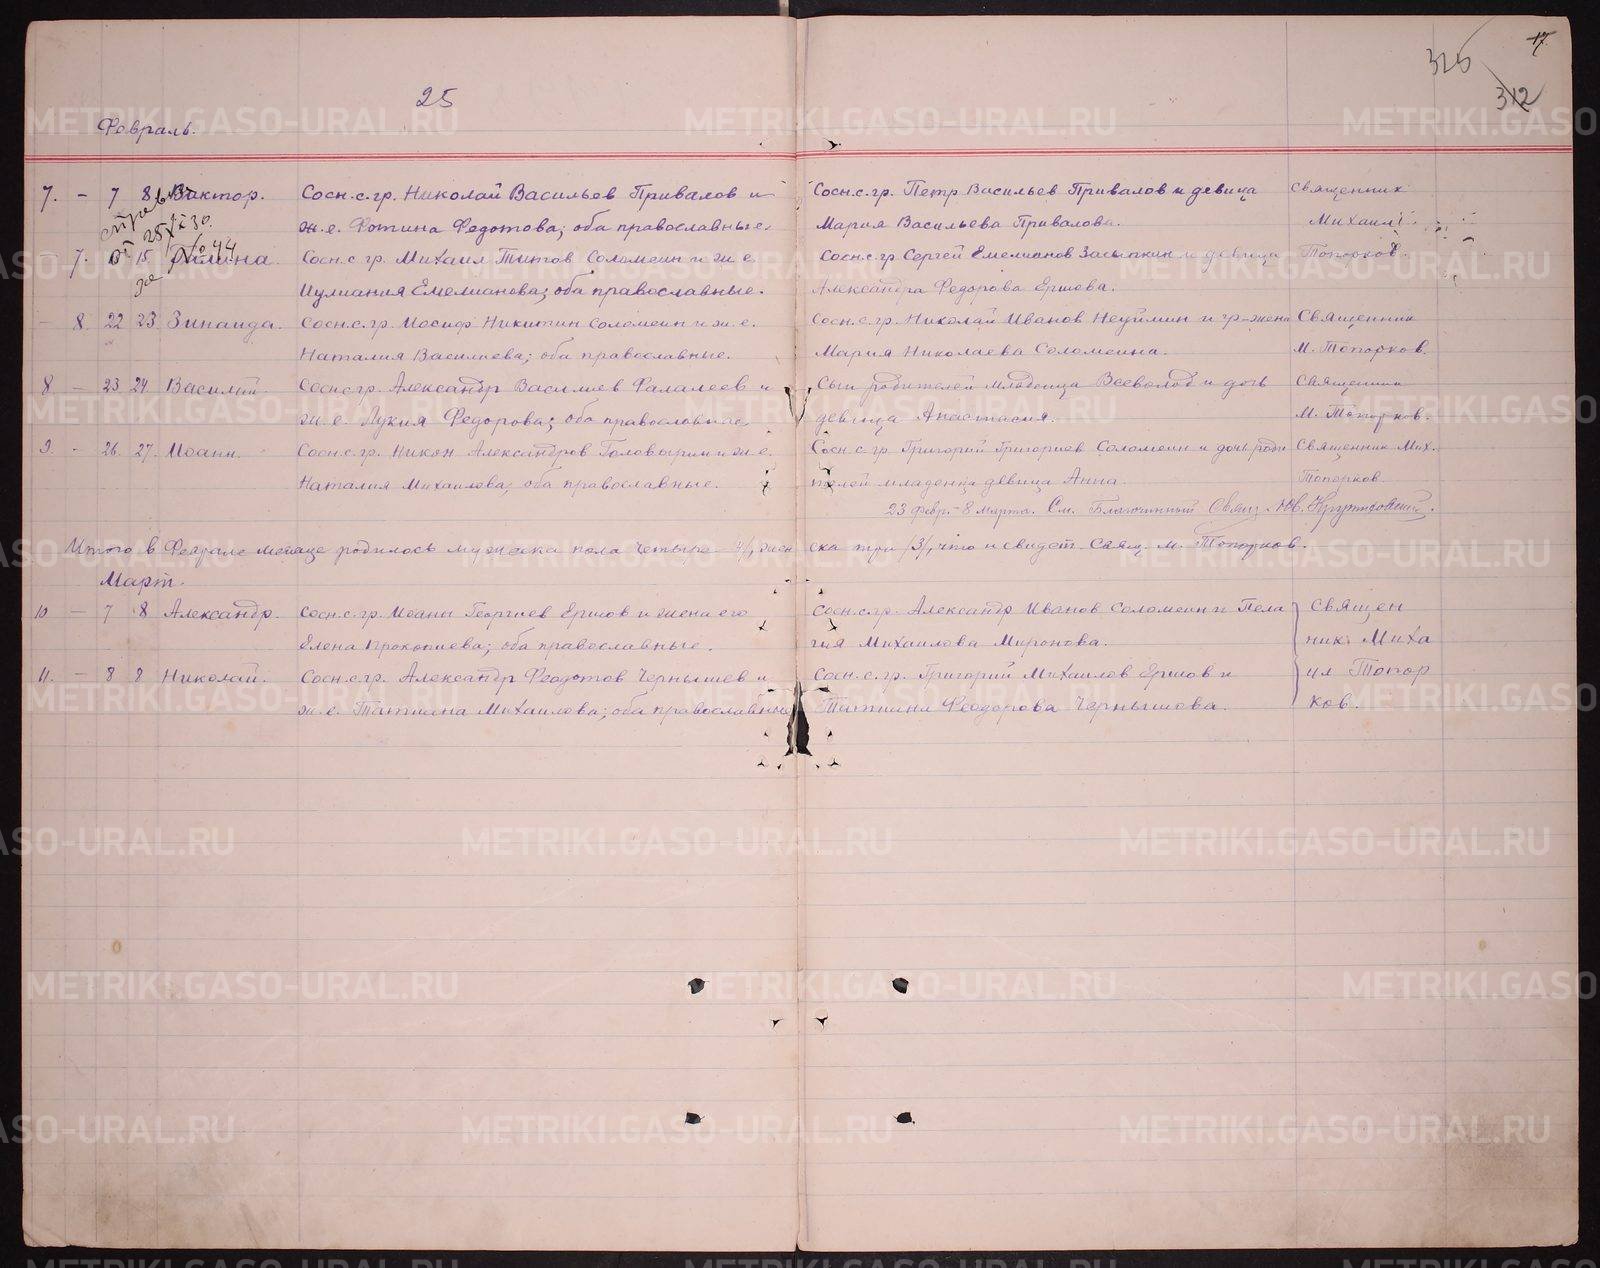 17
325
312
25
Февраль.
7. - 7 8 Виктор. Сосн. с. гр. Николай Васильев Привалов и Сосн. с. гр. Петр Васильев Привалов и девица Священник
ж. е. Фотина Федотова; оба православные. Мария Васильева Привалова. Михаил
справ. от 25/IX 30. за № 44
- 7. 15 Сосн. с. гр. Михаил Титов Соломеин и ж. е. Сосн. с. гр. Сергей Емелианов Засыпкин и девица Топорков.
Иулиания Емелианова; оба православные. Александра Федорова Ершова.
- 8. 22 23 Зинаида. Сосн. с. гр. Иосиф Никитин Соломеин и ж. е. Сосн. с. гр. Николай Иванов Неуймин и гр-жена Священник
Наталия Василиева; оба православные. Мария Николаева Соломеина. М. Топорков.
8 - 23 24 Василий. Сосн. с. гр. Александр Василиев Фалалеев и Сын родителей младенца Всеволод и дочь Священник
ж. е. Лукия Федорова; оба православные. девица Анастасия. М. Топорков.
9. - 26. 27. Иоанн. Сосн. с. гр. Никон Александров Головырин и ж. е. Сосн. с. гр. Григорий Григориев Соломеин и дочь роди Священник Мих.
Наталия Михаилова; оба православные. телей младенца девица Анна. Топорков.
23 февр. - 8 марта. См. Благочинный Свящ.
Итого в Феврале месяце родилось мужеска пола четыре /4/, жен ска три /3/, что и свидет. Свящ. М. Топорков.
Март.
10 - 7 8 Александр. Сосн. с. гр. Иоанн Георгиев Ершов и жена его Сосн. с. гр. Александр Иванов Соломеин и Пела Священ
Елена Прокопиева; оба православные. гия Михаилова Миронова. ник Миха
11. - 8 9 Николай. Сосн. с. гр. Александр Феодотов Чернышев и Сосн. с. гр. Григорий Михаилов Ершов и ил Топор
ж. е. Татиана Михаилова; оба православные Татиана Феодорова Чернышова. ков.